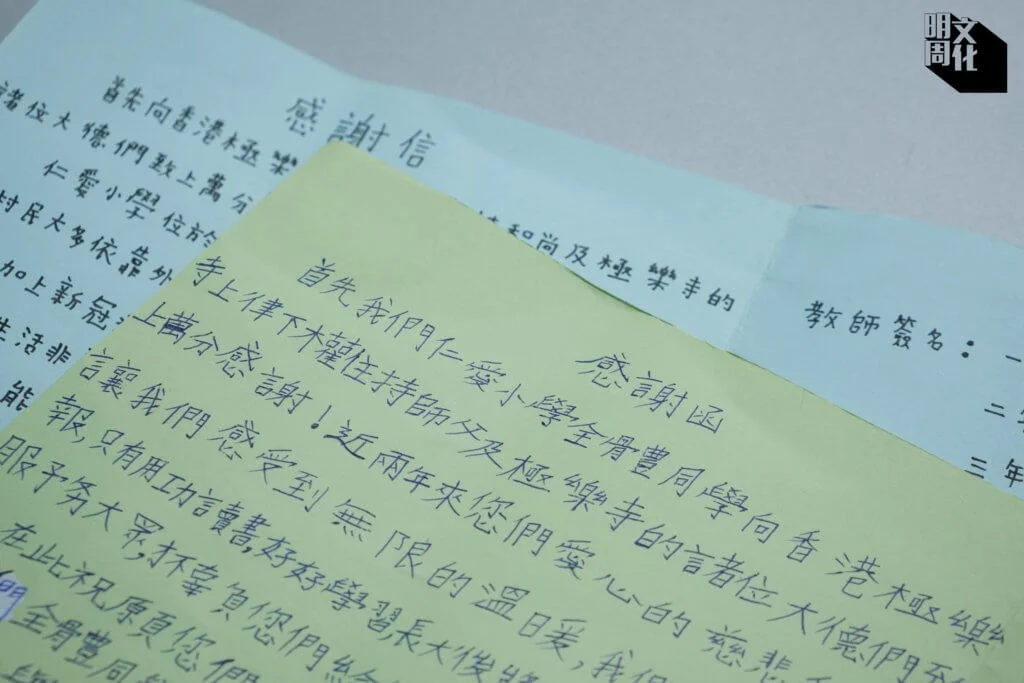 明周
文化
感謝信
首先向香港極樂
和尚及極樂寺的
諸位大德們致上萬分
仁愛小學位於
村民大多依靠外
加上新冠
生活非
能
教師簽名：一
二年
三年
感謝函
首先我們仁愛小學全體同學向香港極樂
寺上律下權住持師父及極樂寺的諸位大德們致
上萬分感謝！近兩年來您們愛心的慈悲
讓我們感受到無限的溫暖，我
報，只有用功讀書，好好學習，長大後將
服務大眾，不辜負您們給
在此祝願您們
全體同